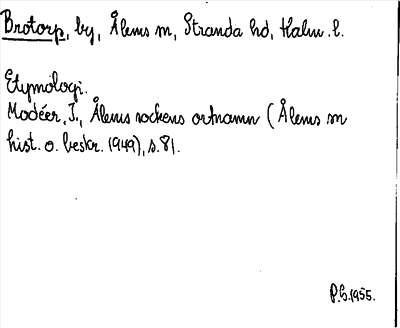 Brotorp, by, Ålems sn, Stranda hd, Kalm. l.
Etymologi.
Modéer, I., Ålems sockens ortnamn (Ålems sn
hist. o. beskr. 1949), s. 81.
P.G.1955.